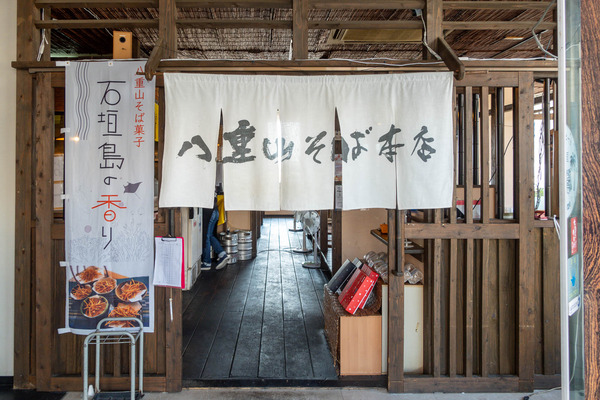 八重山そば本店
八重山そば菓子
石垣島の香り